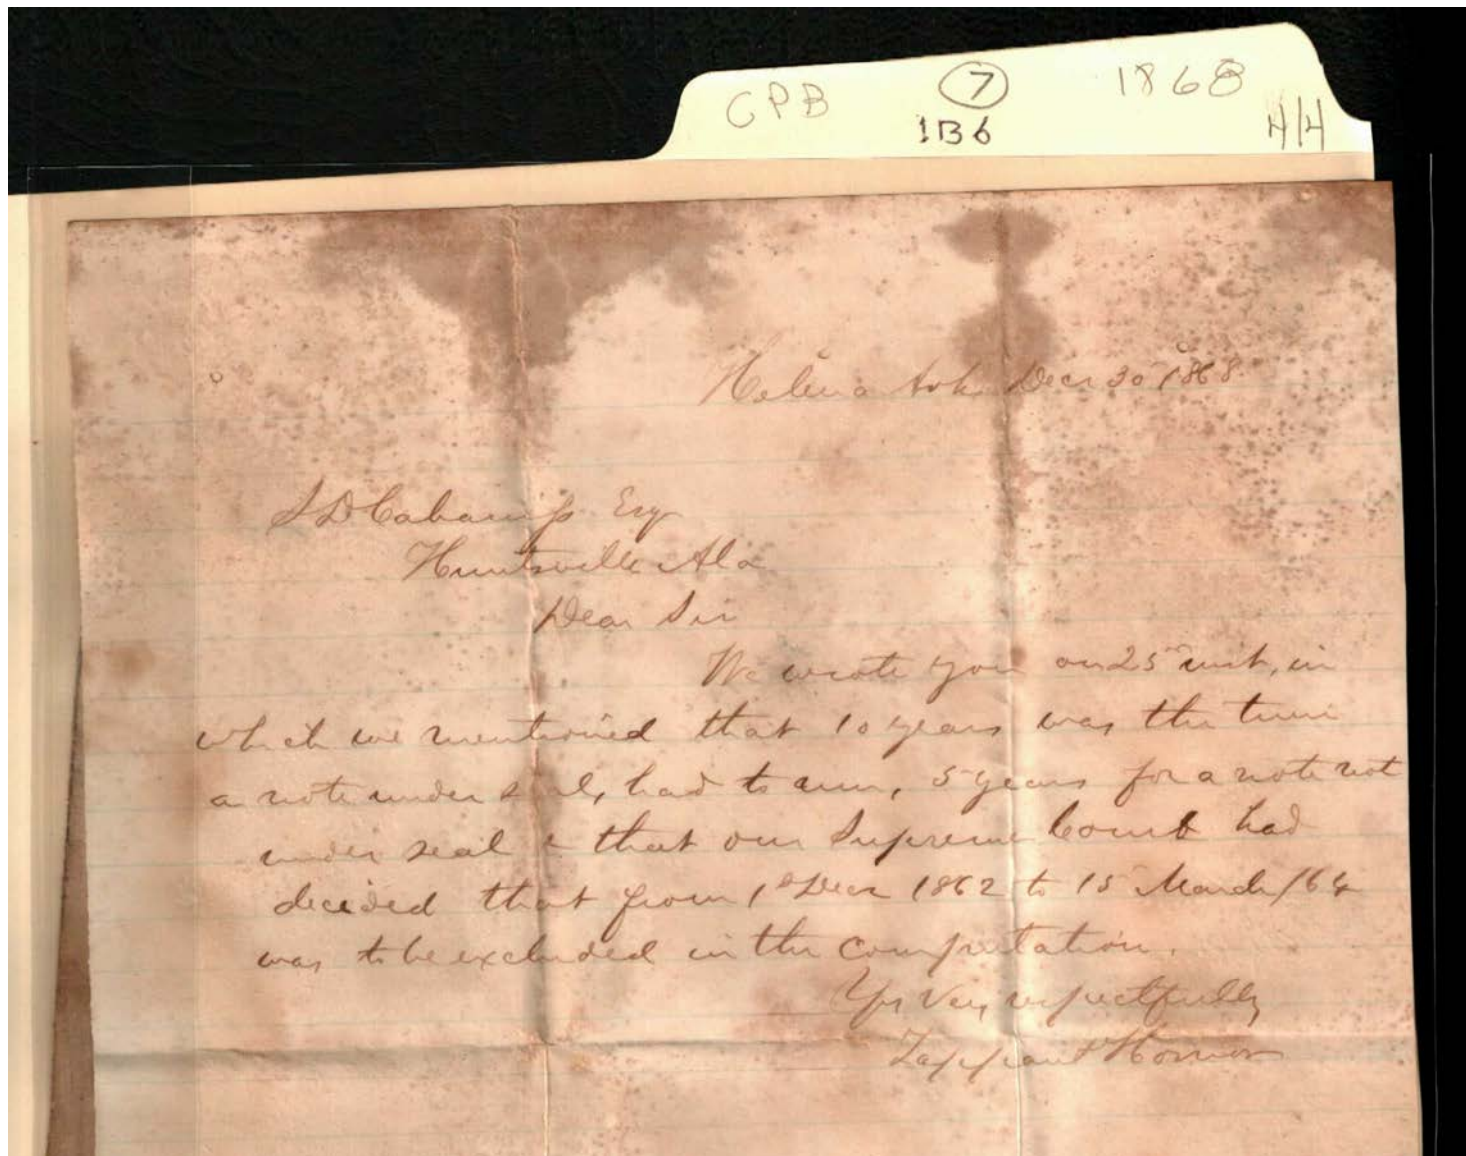 CPB 7 1868
1B6 4/4
Helena Ark Decr 30th 1868.
S D Cabaniss Esq
Huntsville Ala
Dear Sir
We wrote you on 25th inst, in
which we mentioned that 10 years was the time
a note under seal, had to run, 5 years for a note not
under seal & that our Supreme Court had
decided that from 1st Decr 1862 to 15 March /64
was to be excluded in the computation.
Yrs Very respectfully
Tappan & Hornor